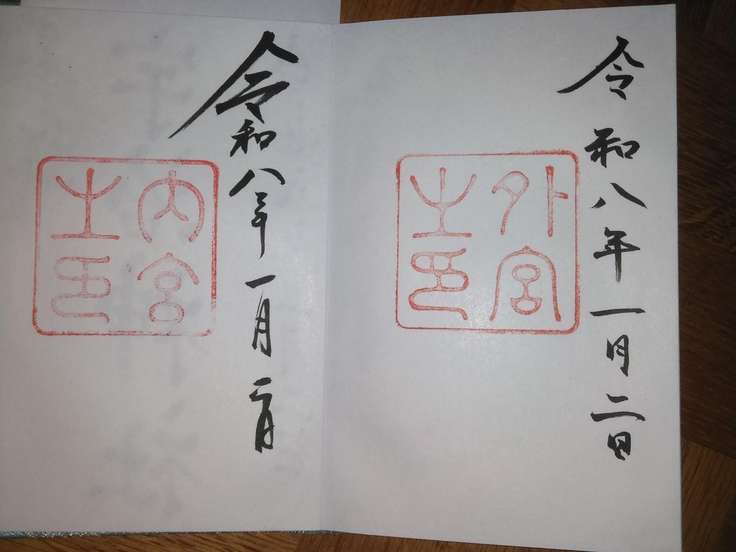 令和八年一月二日
外宮
之印
令和八年一月二日
内宮
之印